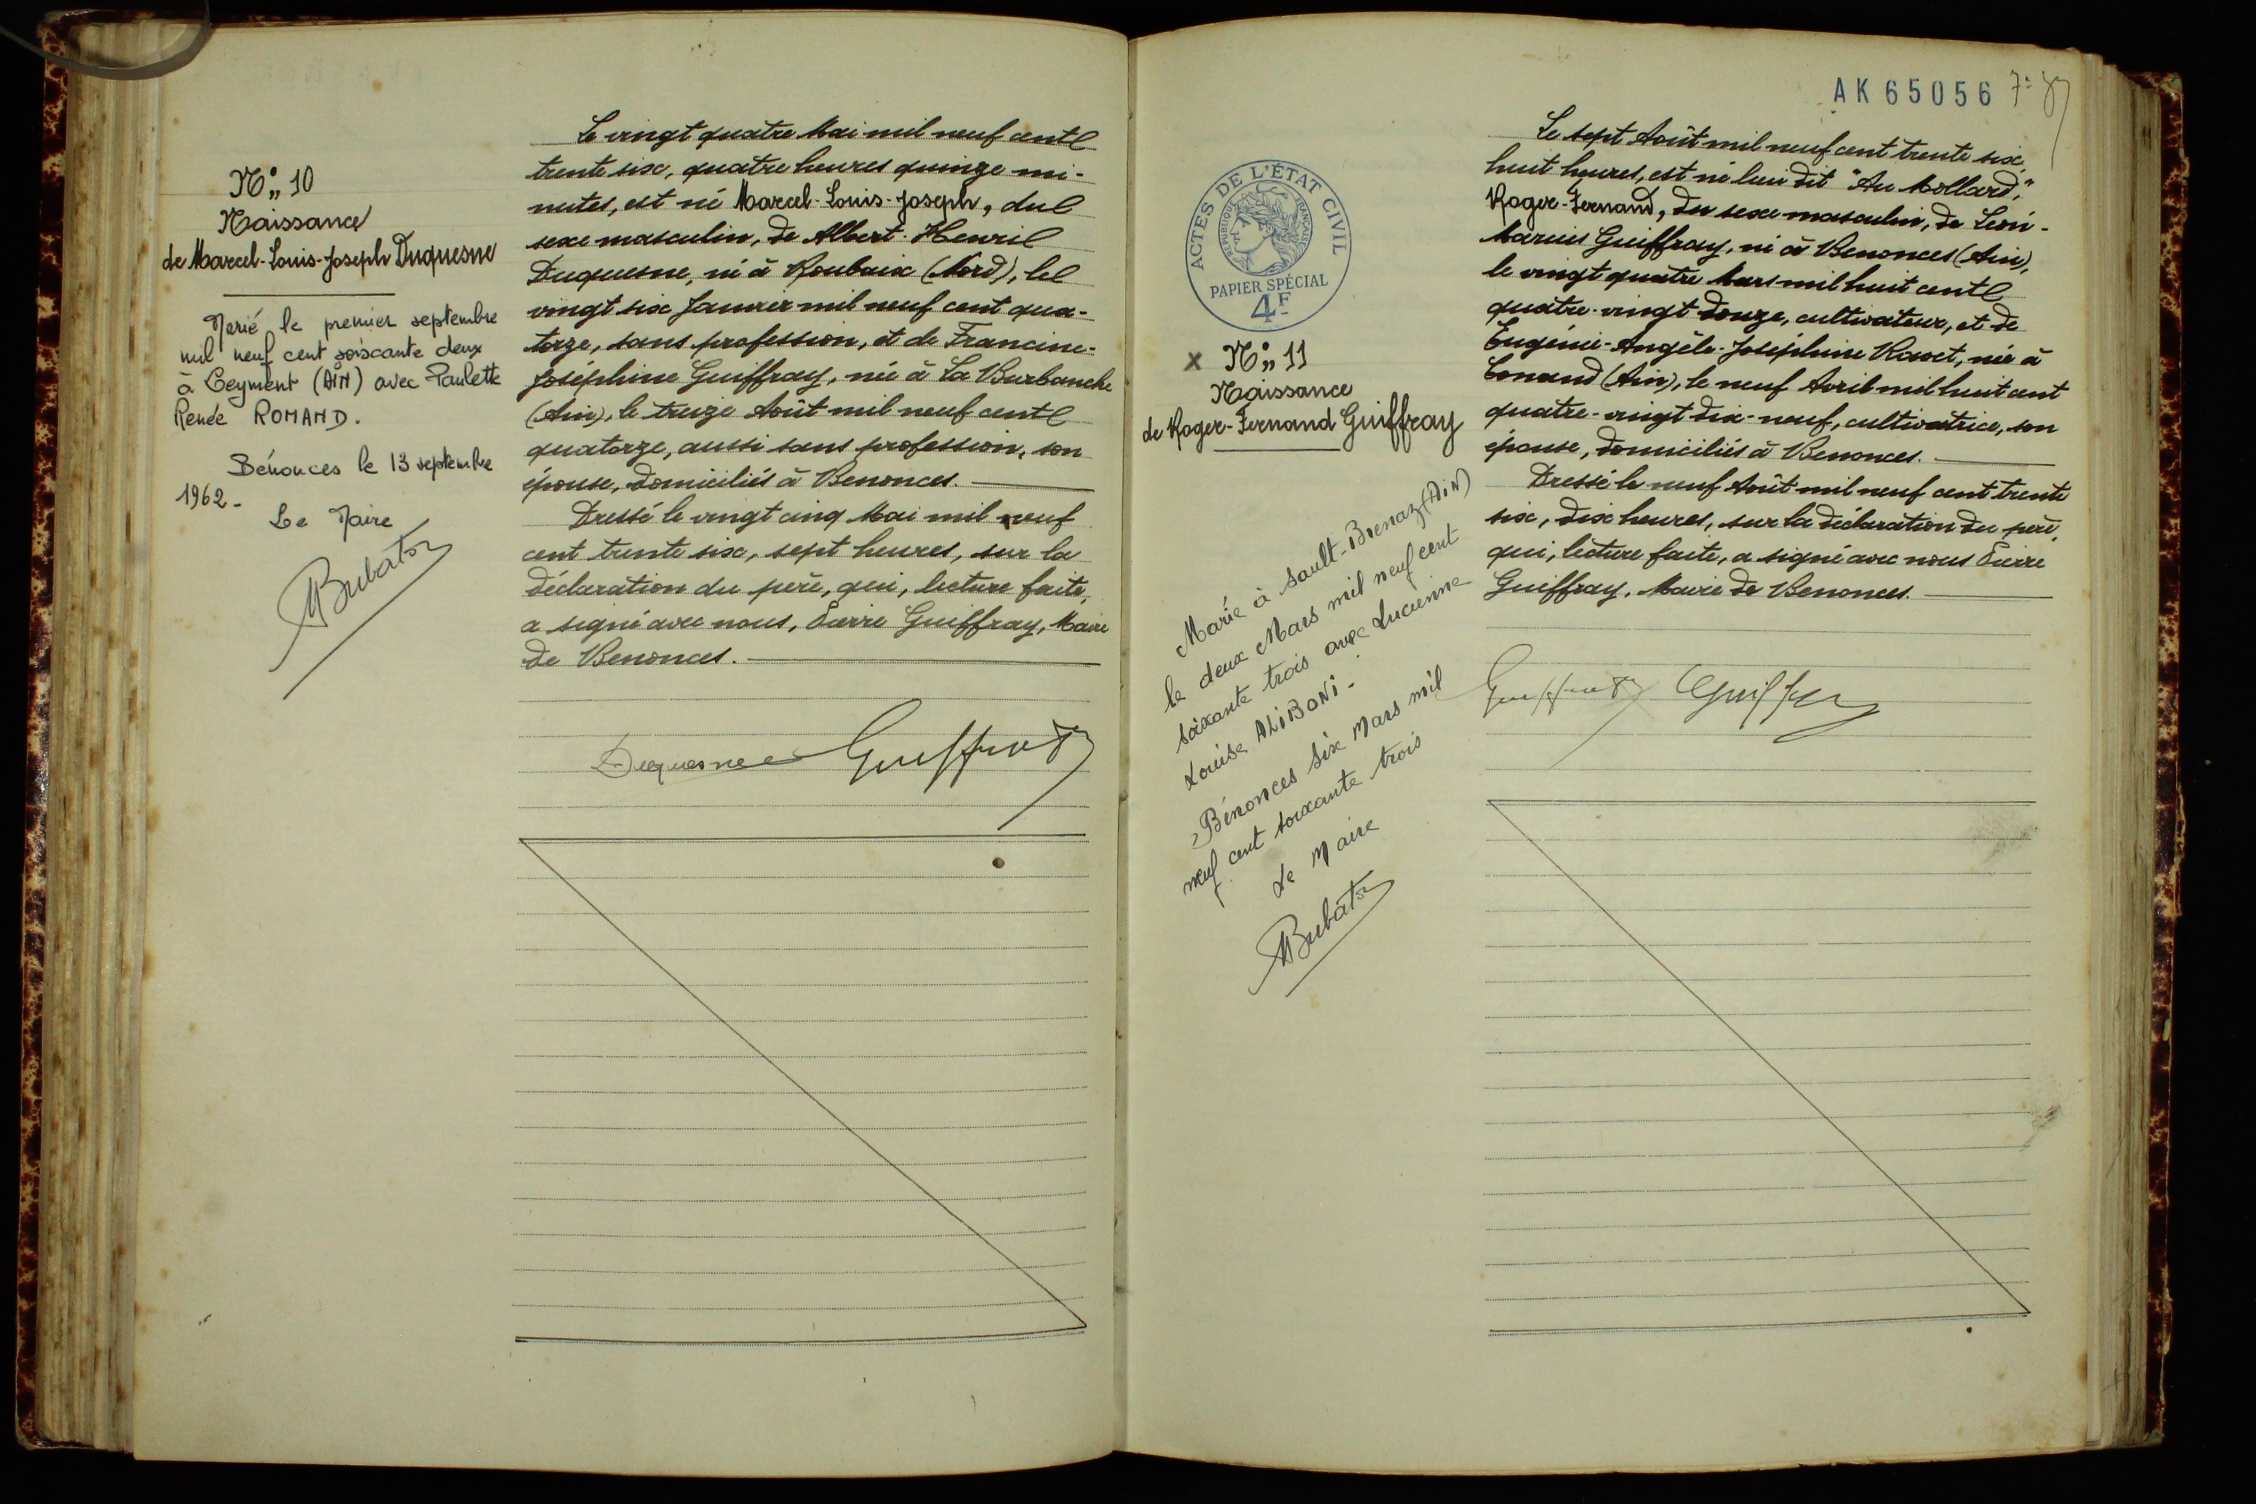 N° 10
Naissance
de Marcel-Louis-Joseph Duquesne
Marié le premier septembre
mil neuf cent soixante deux
à Leyment (AIN) avec Paulette
Renée ROMAND.
Bénonces le 13 septembre
1962-
Le Maire
Le vingt quatre Mai mil neuf cent
trente six, quatre heures quinze mi-
nutes, est né Marcel-Louis-Joseph, du
sexe masculin, de Albert-Henri
Duquesne, né à Roubaix (Nord), le
vingt six Janvier mil neuf cent qua-
torze, sans profession, et de Francine-
Joséphine Guiffray, née à La Burbanche
(Ain), le treize Août mil neuf cent
quatorze, aussi sans profession, son
épouse, domiciliés à Benonces.
Dressé le vingt cinq Mai mil neuf
cent trente six, sept heures, sur la
déclaration du père, qui, lecture faite,
a signé avec nous, Pierre Guiffray, Maire
de Benonces.
Duquesne Guiffray
AK 65056
ACTES DE L'ÉTAT CIVIL
RÉPUBLIQUE FRANÇAISE
PAPIER SPÉCIAL
4F
x N° 11
Naissance
de Roger-Fernand Guiffray
Marié à Sault-Brenaz (AIN)
le deux Mars mil neuf cent
soixante trois avec Lucienne
Louise ALIBONI-
Bénonces six Mars mil
neuf cent soixante trois
Le Maire
Le sept Août mil neuf cent trente six,
huit heures, est né lieu dit "Au Mollard",
Roger-Fernand, du sexe masculin, de Léon-
Marius Guiffray, né à Benonces (Ain),
le vingt quatre Mars mil huit cent
quatre-vingt-douze, cultivateur, et de
Eugénie-Angèle-Joséphine Ravet, née à
Conand (Ain), le neuf Avril mil huit cent
quatre-vingt dix-neuf, cultivatrice, son
épouse, domiciliés à Benonces.
Dressé le neuf Août mil neuf cent trente
six, dix heures, sur la déclaration du père,
qui, lecture faite, a signé avec nous Pierre
Guiffray, Maire de Benonces.
Guiffray Guiffray